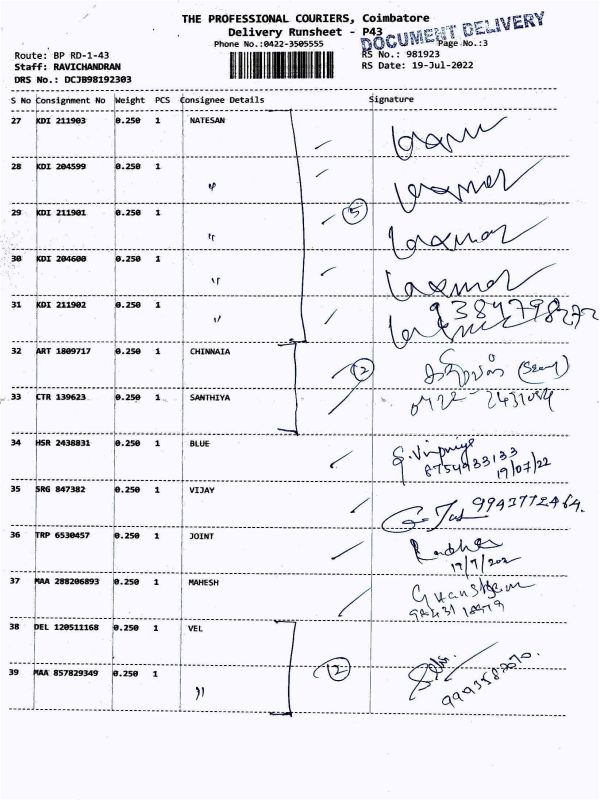 THE PROFESSIONAL COURIERS, Coimbatore
Delivery Runsheet - P43
DOCUMENT DELIVERY
Phone No.:0422-3505555
Page No.:3
Route: BP RD-1-43
RS No.: 981923
Staff: RAVICHANDRAN
RS Date: 19-Jul-2022
DRS No.: DCJB98192303
S No Consignment No Weight PCS Consignee Details Signature
27 KDI 211903 0.250 1 NATESAN
28 KDI 204599 0.250 1 "
29 KDI 211901 0.250 1 " 5
30 KDI 204600 0.250 1 "
31 KDI 211902 0.250 1 "
32 ART 1809717 0.250 1 CHINNAIA 2
33 CTR 139623 0.250 1 SANTHIYA
34 HSR 2438831 0.250 1 BLUE
8754933133
19/07/22
35 SRG 847382 0.250 1 VIJAY 9943772464.
36 TRP 6530457 0.250 1 JOINT
37 MAA 288206893 0.250 1 MAHESH
38 DEL 120511168 0.250 1 VEL
39 MAA 857829349 0.250 1 " 2